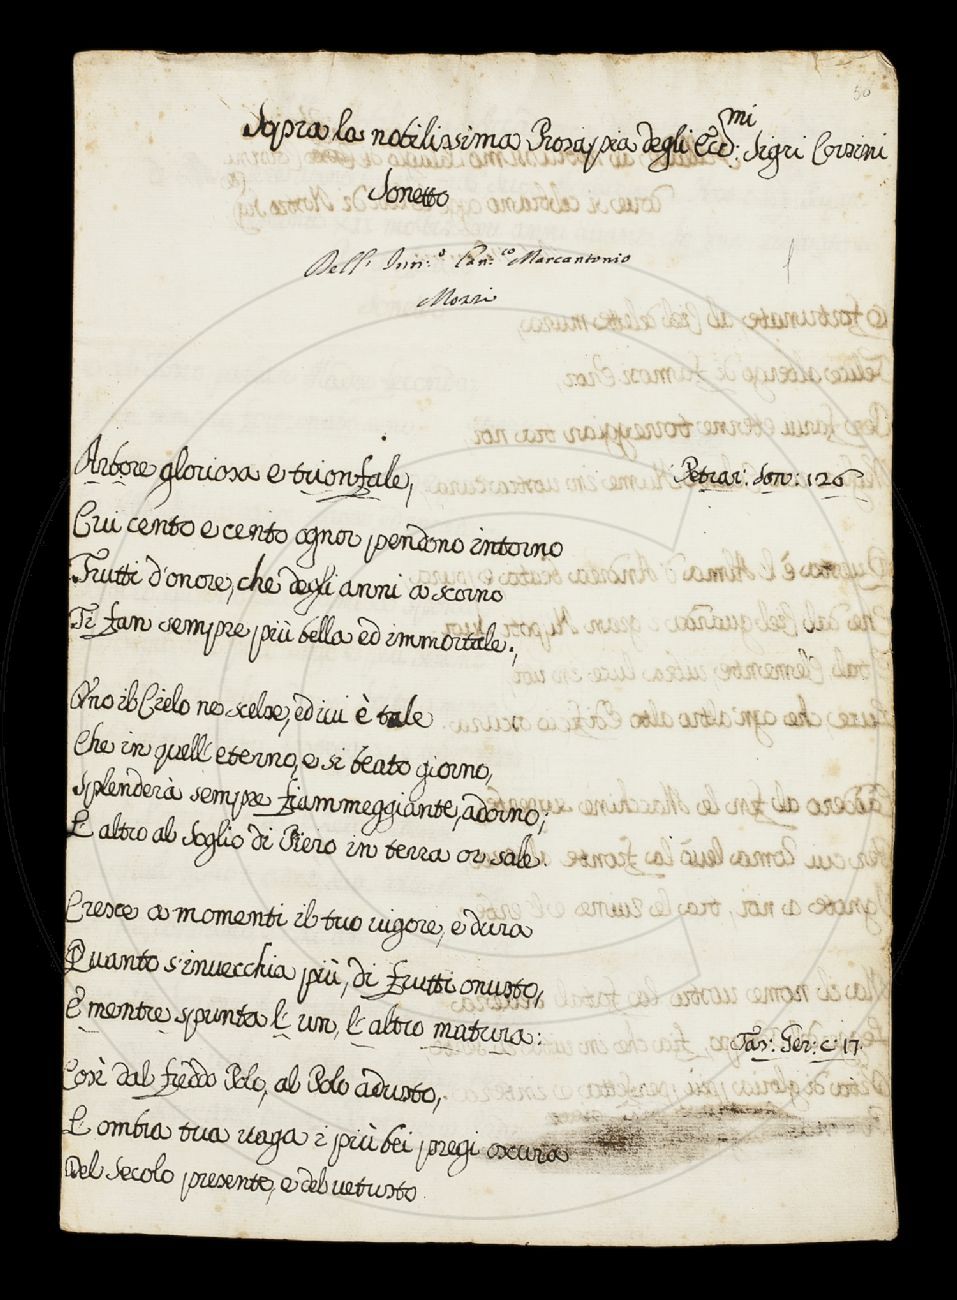 56
Sopra la nobilissima Prosapia degli Ecc.mi Sigri Corsini
Sonetto
Marcantonio
Arbore gloriosa e trionfale,
Petrar: Son: 126
Cui cento e cento ognor pendono intorno
Frutti d'onore, che degli anni a scorno
Ti fan sempre più bella ed immortale;
il Cielo ne scelse, ed ivi è tale
Che in quell' eterno, e sì beato giorno,
Splenderà sempre fiammeggiante, adorno;
L' altro al Soglio di Piero in terra or sale
Cresce a momenti il tuo vigore, e dura
Quanto s'invecchia più, di frutti onusto,
E mentre spunta l' un, l' altro matura:
Tas: Ger: c: 17.
Così dal freddo Polo, al Polo adusto,
L' ombra tua vaga i più bei pregi oscura
Del Secolo presente, e del vetusto